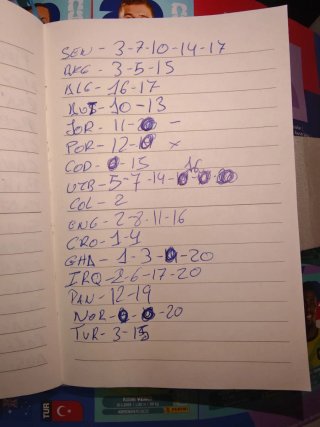 SEN - 3-7-10-14-17
ARG - 3-5-15
ALG - 16-17
AUT - 10-13
JOR - 11- -
POR - 12- x
COD - -15
UZB - 5-7-14-16
COL - 2
ENG - 2-8-11-16
CRO - 1-9
GHA - 1-3- -20
IRQ - 2-6-17-20
PAN - 12-19
NOR - - -20
TUR - 3-15
TUR
PANINI